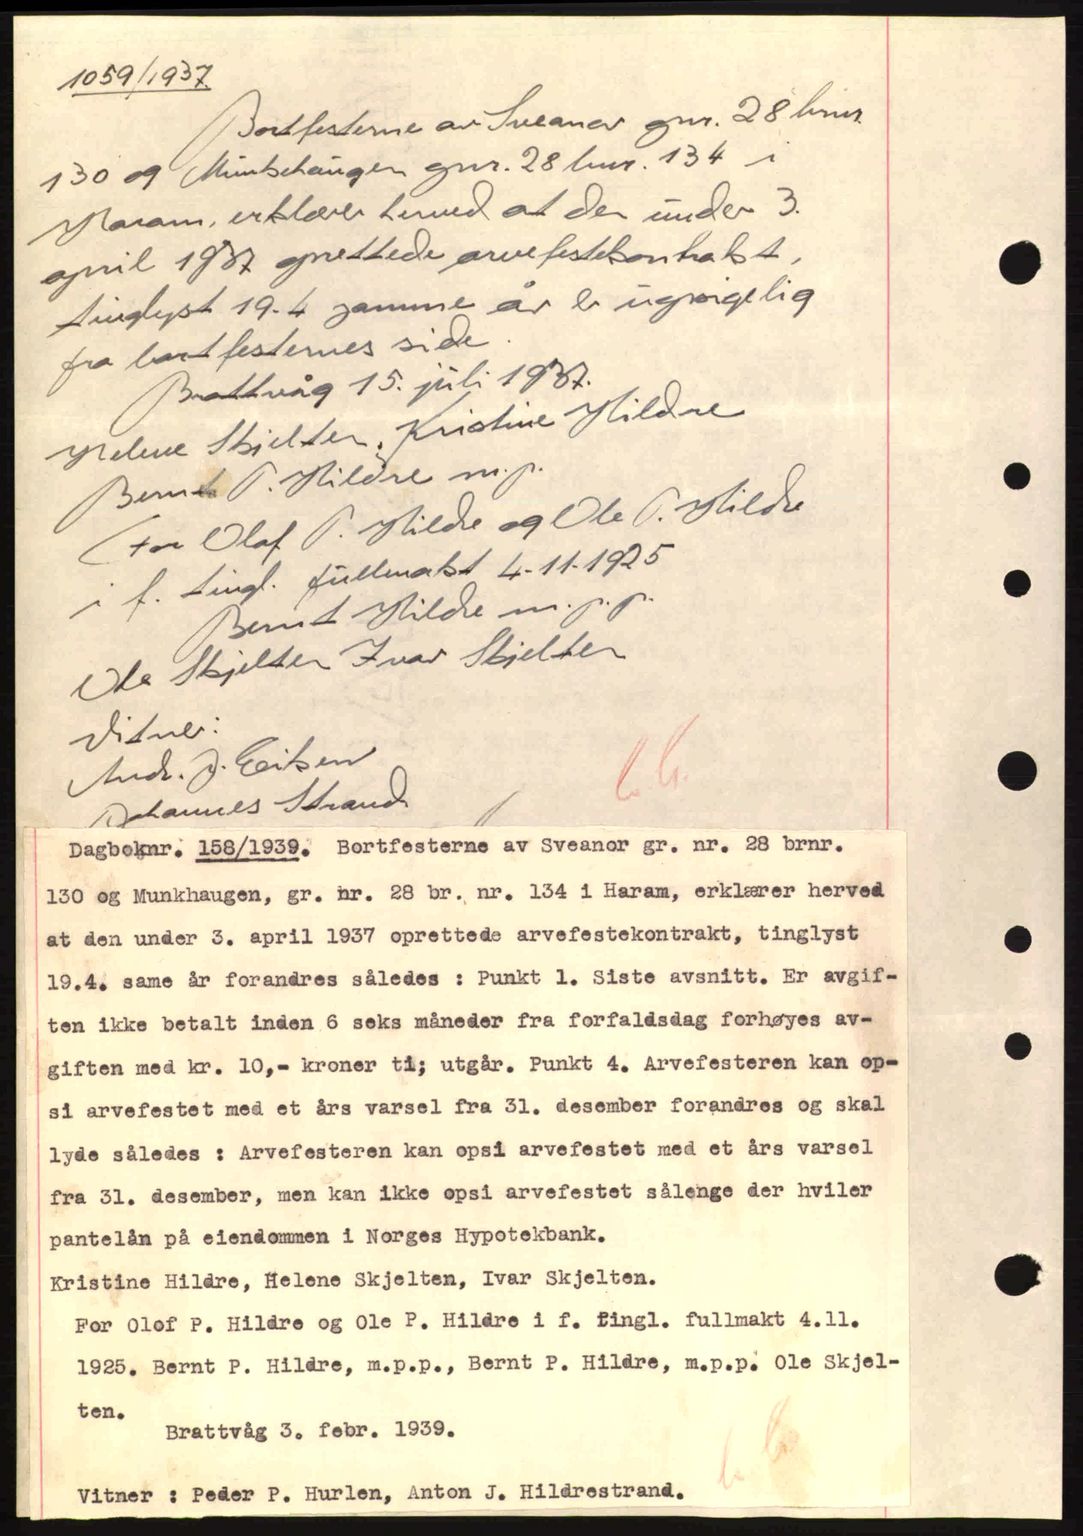 1059/1937
Bortfesterne av Sveanor gnr. 28 bnr.
130 og Munkehaugen gnr. 28 bnr. 134 i
Haram, erklærer herved at den under 3.
april 1937 oprettede arvefestekontrakt,
tinglyst 19.4 samme år er uopsigelig
fra bortfesternes side.
Brattvåg 15. juli 1937.
Helene Skjelten, Kristine Hildre
Bernt P. Hildre m.p.
For Olaf P. Hildre og Ole P. Hildre
i f. tingl. fullmakt 4-11-1925
Bernt Hildre m.p.p.
Ole Skjelten Ivar Skjelten
Vitner:
Andr. J. Eriksen
Johannes Strand
Dagboknr. 158/1939. Bortfesterne av Sveanor gr. nr. 28 brnr.
130 og Munkhaugen, gr. nr. 28 br. nr. 134 i Haram, erklærer herved
at den under 3. april 1937 oprettede arvefestekontrakt, tinglyst
19.4. same år forandres således : Punkt 1. Siste avsnitt. Er avgif-
ten ikke betalt inden 6 seks måneder fra forfaldsdag forhøyes av-
giften med kr. 10,- kroner ti; utgår. Punkt 4. Arvefesteren kan op-
si arvefestet med et års varsel fra 31. desember forandres og skal
lyde således : Arvefesteren kan opsi arvefestet med et års varsel
fra 31. desember, men kan ikke opsi arvefestet sålenge der hviler
pantelån på eiendommen i Norges Hypotekbank.
Kristine Hildre, Helene Skjelten, Ivar Skjelten.
For Olof P. Hildre og Ole P. Hildre i f. tingl. fullmakt 4.11.
1925. Bernt P. Hildre, m.p.p., Bernt P. Hildre, m.p.p. Ole Skjel-
ten.
Brattvåg 3. febr. 1939.
Vitner : Peder P. Hurlen, Anton J. Hildrestrand.